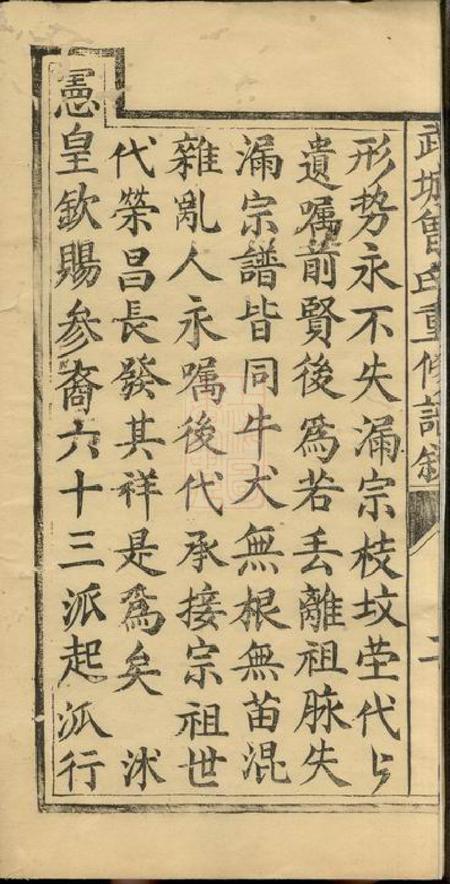 武城曾氏重修譜錄
二
形势永不失漏宗枝坟茔代々
遺嘱前賢後為若丢離祖脉失
漏宗譜皆同牛犬無根無苗混
雜亂人永嘱後代承接宗祖世
代荣昌長發其祥是為矣 沭
憲皇欽賜参裔六十三派起派行